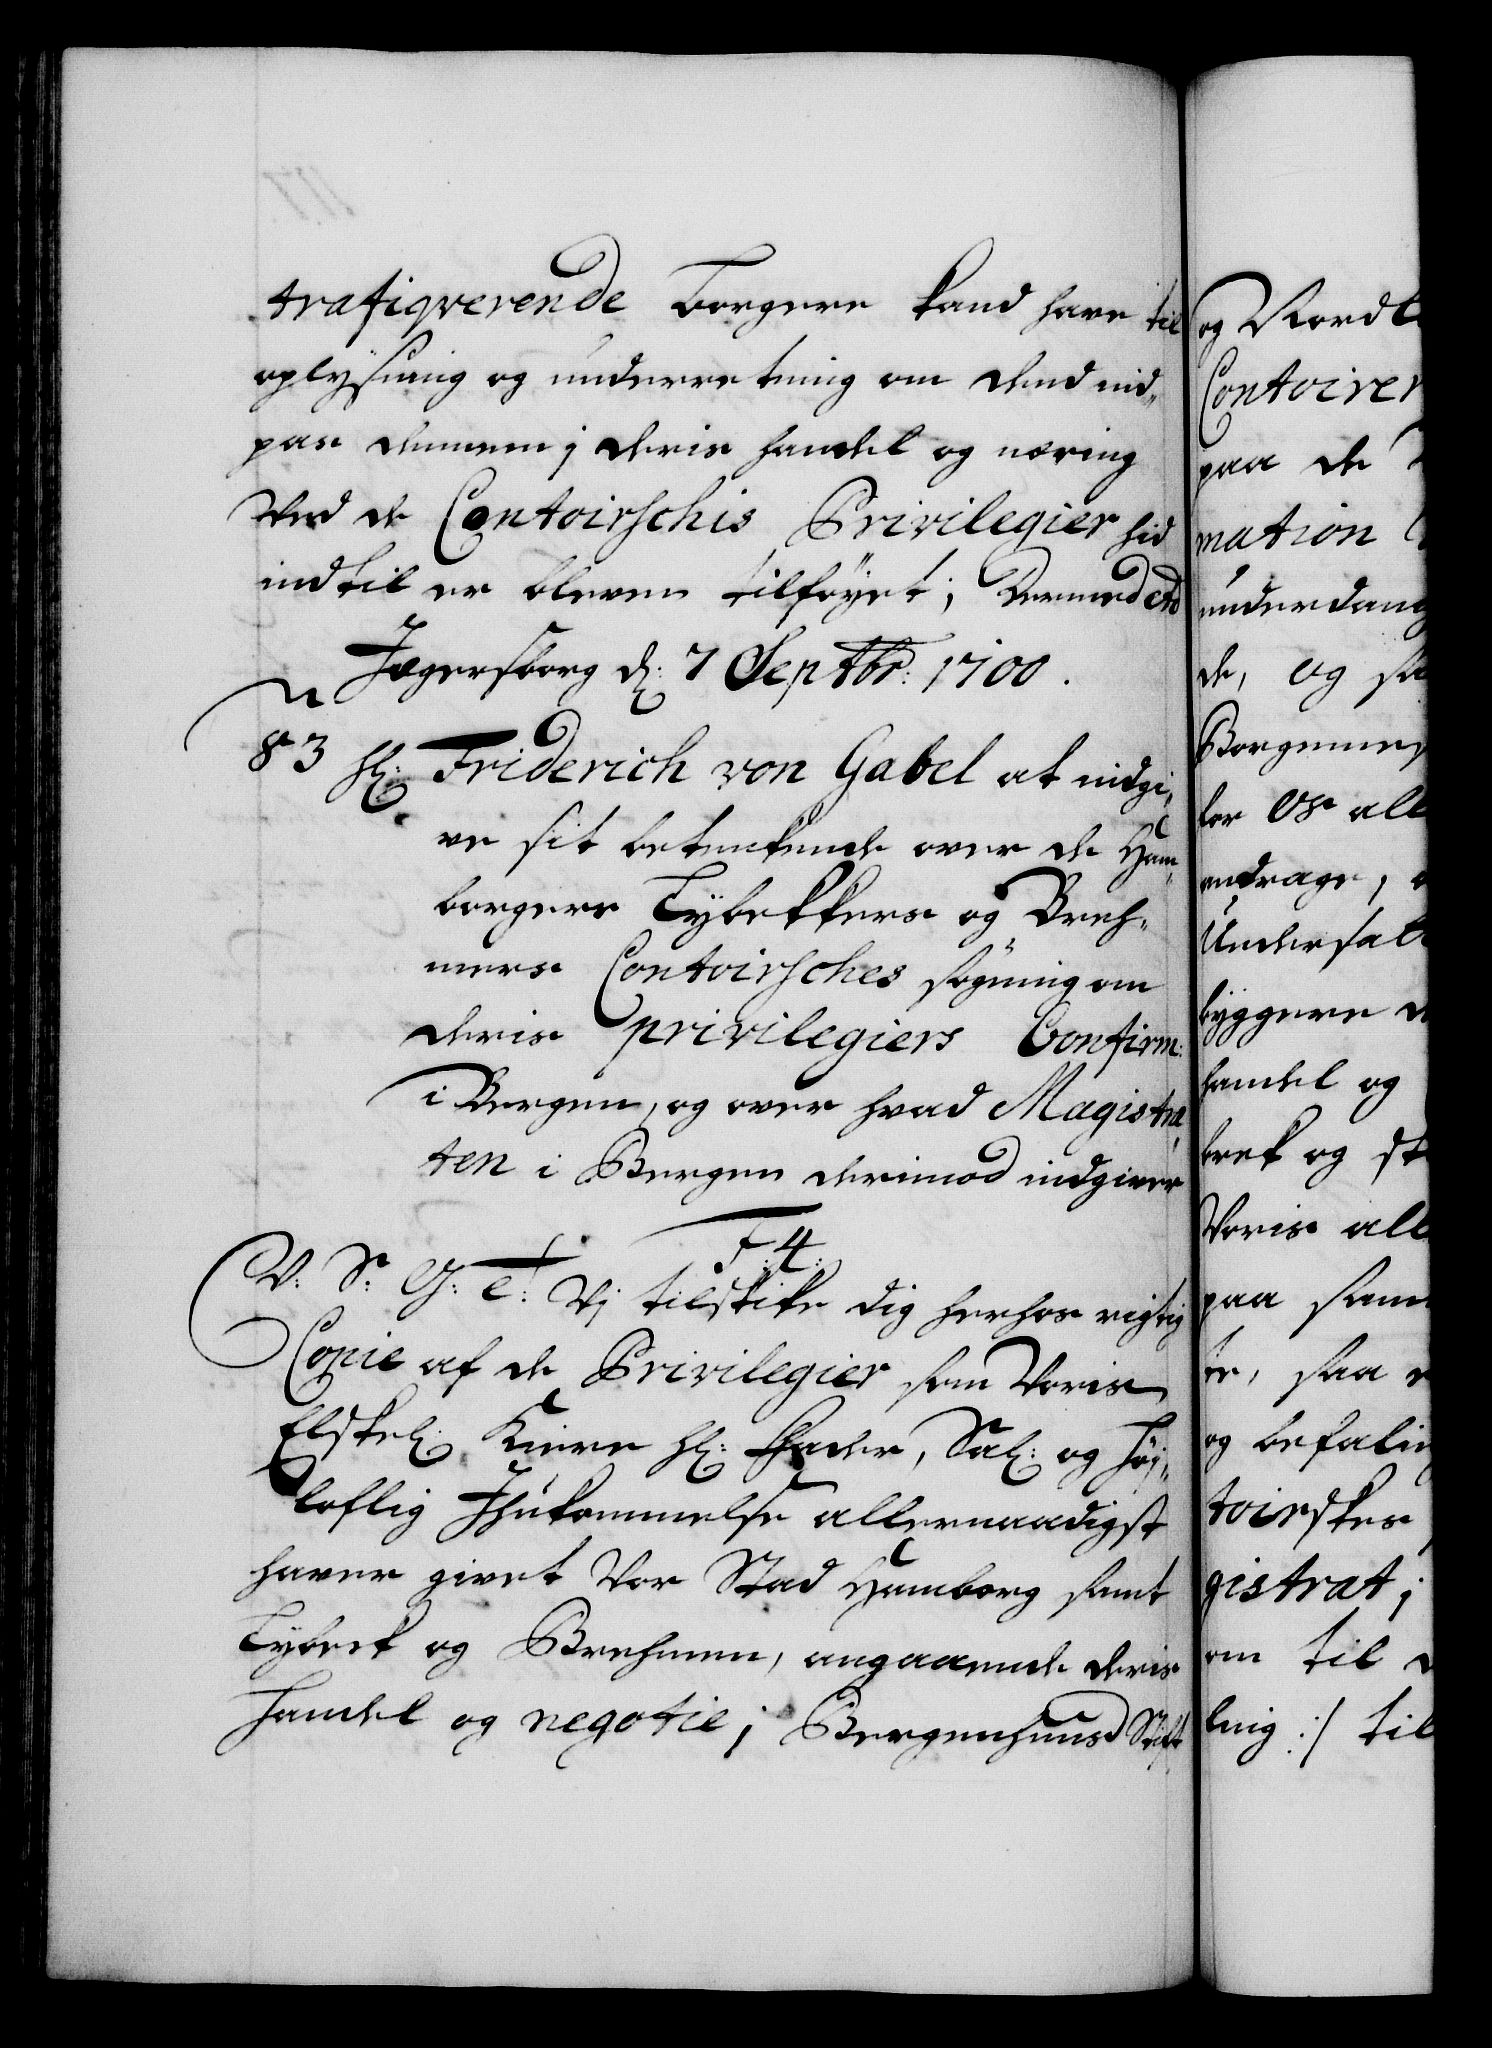 trafiqverende borgere kand have til
oplysning og underretning om dend ind„
pas dennem j deris handel og næring
Ved de Contoirschis Privilegier hid
indtil er bleven tilføyet; Dermed etc
Jegersborg d: 7 Septbr: 1700.
83 H: Friderich von Gabel at indgi,
ve sit betenkende over de Ham„
borgers Lybekkers og Breh„
mers Contoirsches søgning om
deris privilegiers Confirm:
i Bergen, og over hvad Magistra,
ten i Bergen derimod indgiver
F: 4:
V: S: G: T: Vj tilskike dig herhos rigtig
Copie af de Privilegier som Voris
Elskel: Kiere H: Fader, Sal: og Høj„
loflig Ihukommelse allernaadigst
haver givet Vor Stad Hamborg samt
Lybek og Brehmen, angaaende deris
handel og negotie j Bergenhuus Stift
og Nordl
Contoirer
paa de
mation
underdanig
de, og sa
Borgemes
for os all
andrage,
Undersat
byggere
handel og
brek og sk
Voris all
paa sam
te, saa
og befalin
toirskes
gistrat j
om til
ling :/ til